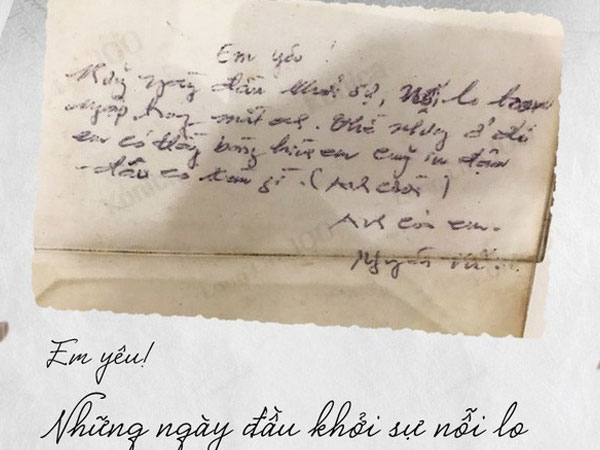 Em yêu!
Những ngày đầu khởi sự, Nỗi lo tràn
ngập trong mắt anh. Thế nhưng ở đó
em có thấy bóng hình em cũng in đậm
đâu có kém gì. (Anh cười)
Anh của em.
Nguyễn
Em yêu!
Những ngày đầu khởi sự nỗi lo